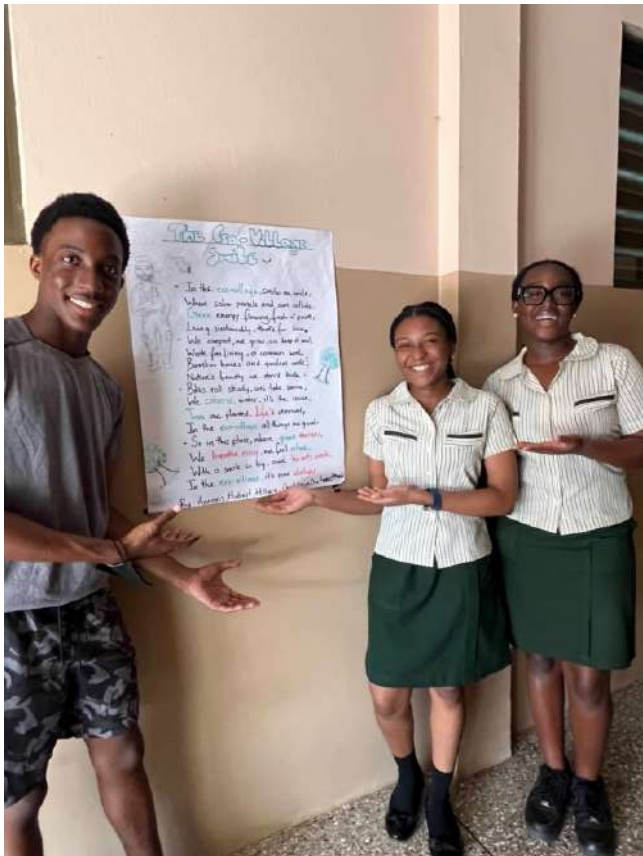 The Eco-Village
Smile
- In the eco-village, smiles are wide,
Where solar panels and sun collide.
Green energy flowing, fresh n' pure,
Living sustainably, that's for sure.
- We compost, we grow, we keep it real,
Waste free living, a common
Bamboo homes and gardens wide,
Nature's beauty, we can't hide.
- Bikes roll steady, cars take
We conserve water, it's the
Trees are planted, life's
In the eco-village all things are good.
- So in this place, where green thrives,
We breathe easy, we feel alive,
With a smile so big, and hearts
In the eco-village, it's our
By: